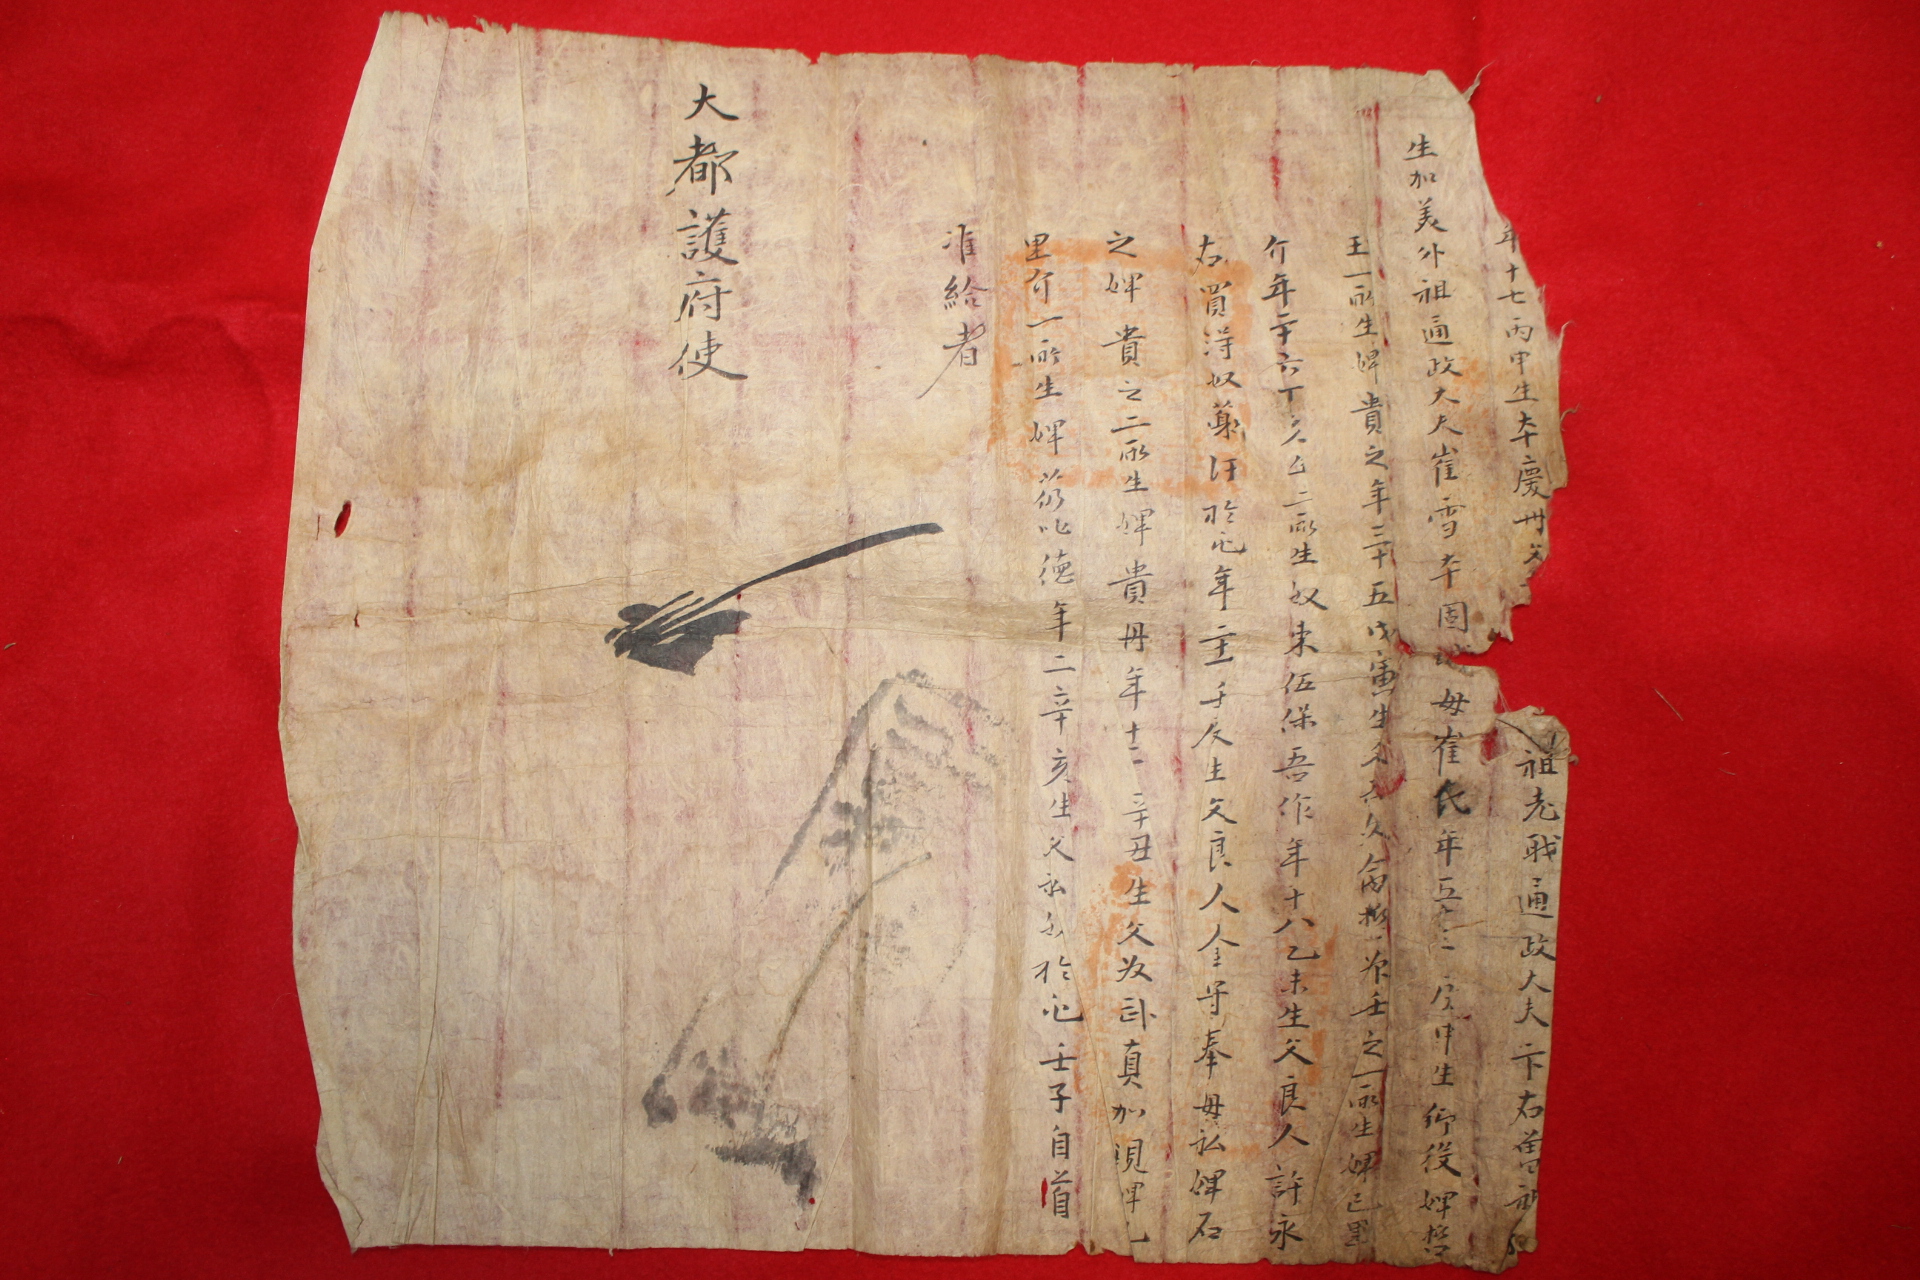 年十七丙申生本慶州父 祖老職通政大夫卞右曾祖
生加美外祖通政大夫崔雪本固城母崔氏年五十三庚申生仰役婢哲
玉一所生婢貴之年三十五戊寅生 壬之一所生婢已里
介年二十六丁亥 二所生奴東伍保吾作年十八乙未生父良人許永
右買得奴 年二十一壬辰生父良人金守奉母私婢石
之婢貴之二所生婢貴丹年十二辛丑生父 卦眞加現婢
里介一所生婢 德年二辛亥生父私奴 壬子自首
准給者
大都護府使